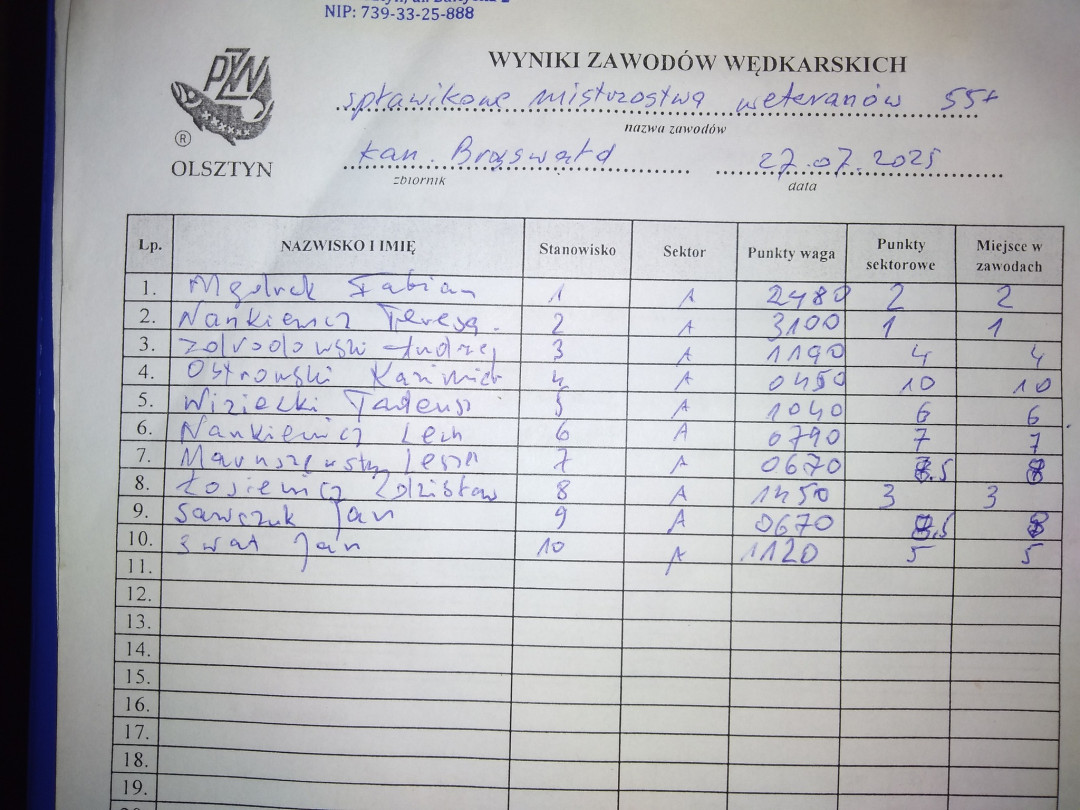 NIP: 739-33-25-888
PZW
®
OLSZTYN
WYNIKI ZAWODÓW WĘDKARSKICH
spławikowe mistrzostwa weteranów 55+
nazwa zawodów
kan. Brąswałd 27.07.2025
zbiornik data
Lp. NAZWISKO I IMIĘ Stanowisko Sektor Punkty waga Punkty sektorowe Miejsce w zawodach
1. Fabian 1 A 2480 2 2
2. Nankiewicz Teresa 2 A 3100 1 1
3. Zdrodowski Andrzej 3 A 1190 4 4
4. Ostrowski Kazimierz 4 A 0450 10 10
5. Wiziecki Tadeusz 5 A 1040 6 6
6. Nankiewicz Lech 6 A 0790 7 7
7. 7 A 0670 8.5 8
8. Łosiewicz Zdzisław 8 A 1450 3 3
9. Sawczuk Jan 9 A 0670 8.5 8
10. Jan 10 A 1120 5 5
11.
12.
13.
14.
15.
16.
17.
18.
19.